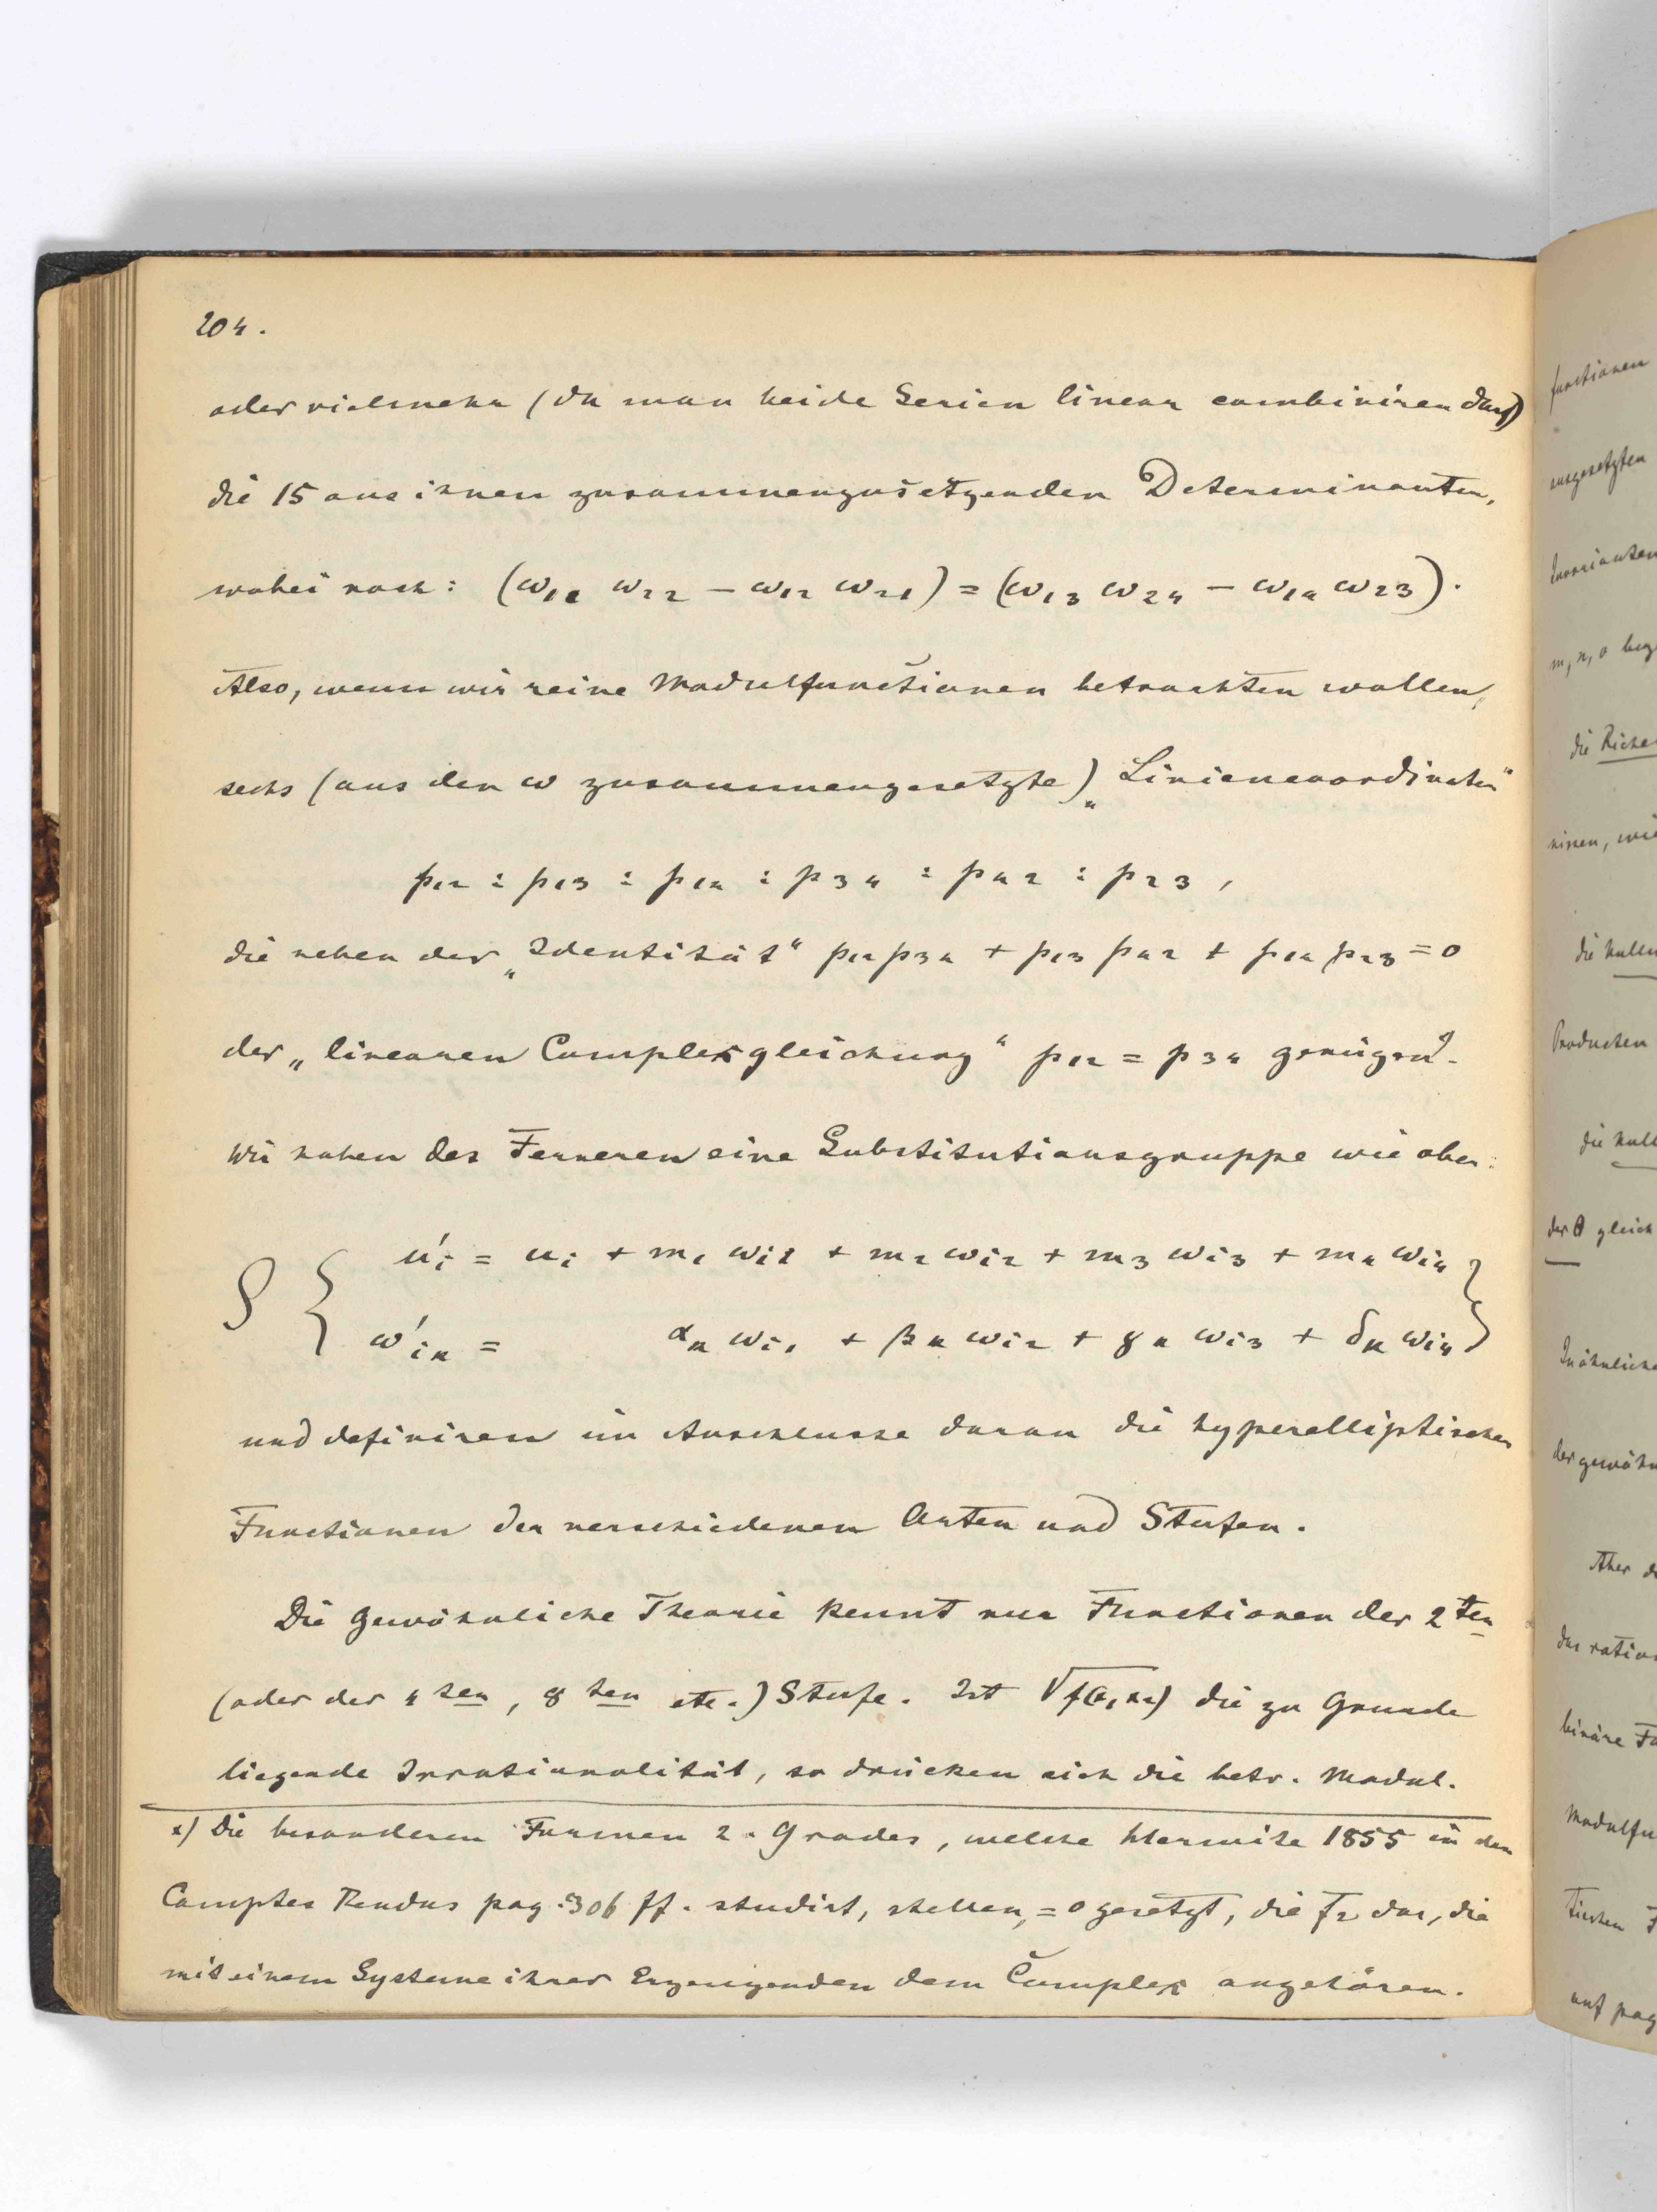 204.
oder vielmehr (da man beide Serien linear combiniren darf)
die 15 aus ihnen zusammenzusetzenden Determinanten,
wobei noch: (ω₁₁ ω₂₂ – ω₁₂ ω₂₁) = (ω₁₃ ω₂₄ – ω₁₄ ω₂₃).
Also, wenn wir reine Modulfunctionen betrachten wollen,
sechs (aus den ω zusammengesetzte) „Liniencoordinaten“
p₁₂ : p₁₃ : p₁₄ : p₃₄ : p₄₂ : p₂₃ ,
die neben der „Identität“ p₁₂ p₃₄ + p₁₃ p₄₂ + p₁₄ p₂₃ = 0
der „linearen Complexgleichung“ p₁₂ = p₃₄ genügen.
Wir haben des Ferneren eine Substitutionsgruppe wie oben:
S { u'ᵢ = uᵢ + m₁ ωᵢ₁ + m₂ ωᵢ₂ + m₃ ωᵢ₃ + m₄ ωᵢ₄ }
ω'ᵢₖ = αₖ ωᵢ₁ + βₖ ωᵢ₂ + γₖ ωᵢ₃ + δₖ ωᵢ₄
und definiren im Anschlusse daran die hyperelliptischen
Functionen der verschiedenen Arten und Stufen.
Die gewöhnliche Theorie kennt nur Functionen der 2ten
(oder der 4ten, 8ten etc.) Stufe. Ist √f(x₁x₂) die zu Grunde
liegende Irrationalität, so drücken sich die betr. Modul.
x) Die besonderen Formen 2. Grades, welche Hermite 1855 in den
Comptes Rendus pag. 306 ff. studirt, stellen, = 0 gesetzt, die F₂ dar, die
mit einem Systeme ihrer Erzeugenden dem Complex angehören.
functionen
Invarianten
m, n, o
die
nissen, wie
die
Producten
die
der θ gleich
In ähnlicher
Aber
binäre
auf pag